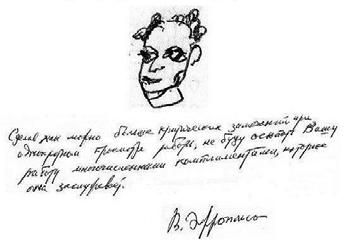 Сделав как можно больше критических замечаний при
однократном просмотре работы, не буду осыпать Вашу
работу многочисленными комплиментами, которые
она заслуживает.
В. Эфроимсон